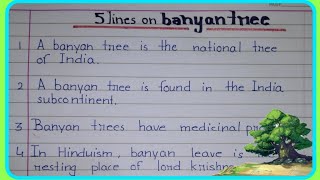 5 lines on banyan tree
1 A banyan tree is the national tree
of India.
2 A banyan tree is found in the India
subcontinent.
3 Banyan trees have medicinal
4 In Hinduism, banyan leave is
resting place of lord krishna